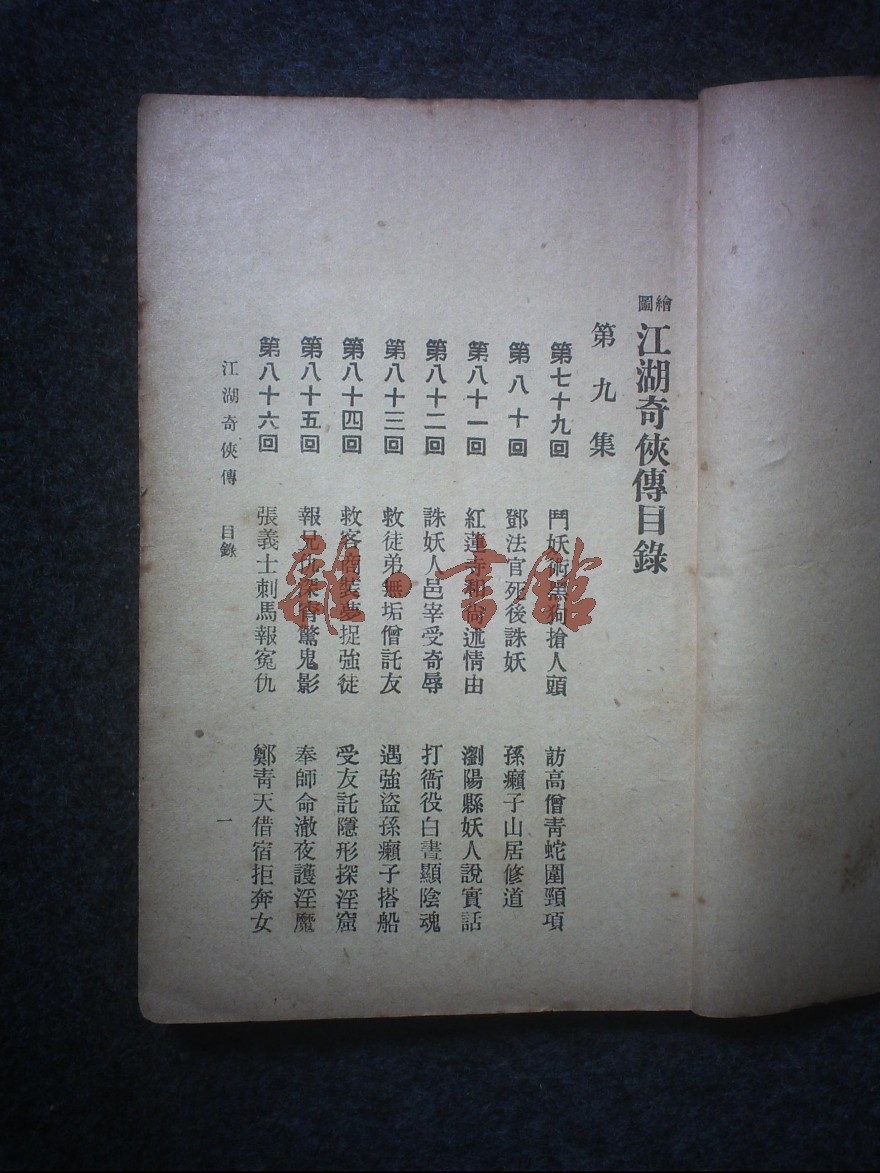 繪圖 江湖奇俠傳目錄
第九集
第七十九回 鬥妖術黑狗搶人頭 訪高僧青蛇圍頸項
第八十回 鄧法官死後誅妖 孫癩子山居修道
第八十一回 紅蓮寺和尚述情由 瀏陽縣妖人說實話
第八十二回 誅妖人邑宰受奇辱 打衙役白晝顯陰魂
第八十三回 救徒弟無垢僧託友 遇強盜孫癩子搭船
第八十四回 救客商裝夢捉強徒 受友託隱形探淫窟
第八十五回 報兄仇深宵驚鬼影 奉師命澈夜護淫魔
第八十六回 張義士刺馬報冤仇 鄭青天借宿拒奔女
江湖奇俠傳 目錄 一
雜·書館